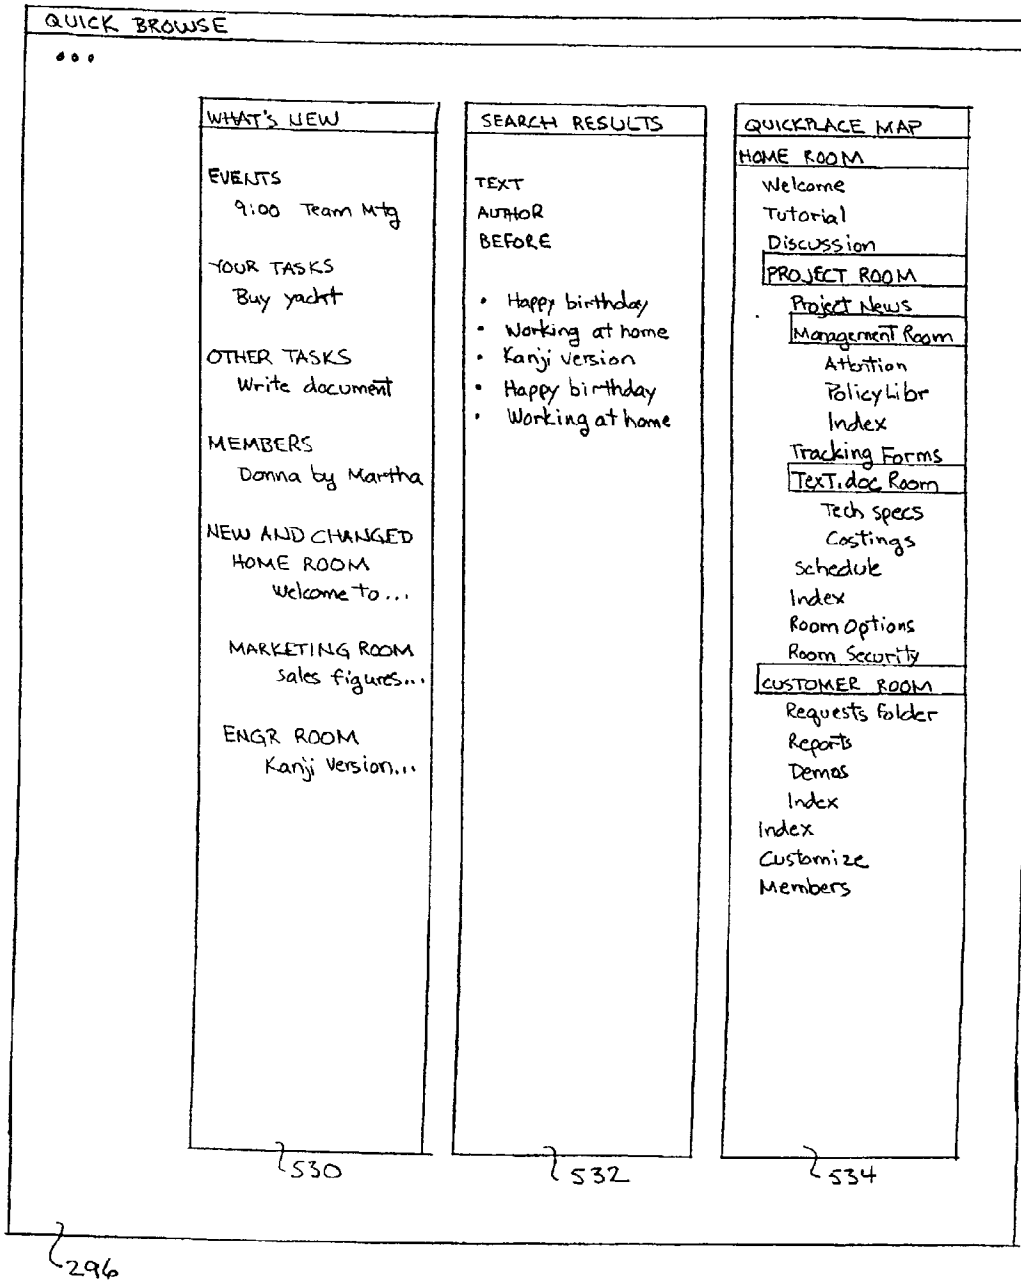 QUICK BROWSE
...
WHAT'S NEW
EVENTS
9:00 Team Mtg
YOUR TASKS
Buy yacht
OTHER TASKS
Write document
MEMBERS
Donna by Martha
NEW AND CHANGED
HOME ROOM
Welcome to...
MARKETING ROOM
Sales figures...
ENGR ROOM
Kanji Version...
530
SEARCH RESULTS
TEXT
AUTHOR
BEFORE
• Happy birthday
• Working at home
• Kanji version
• Happy birthday
• Working at home
532
QUICKPLACE MAP
HOME ROOM
Welcome
Tutorial
Discussion
PROJECT ROOM
Project News
Management Room
Attention
Policy Libr
Index
Tracking Forms
Text.doc Room
Tech specs
Costings
Schedule
Index
Room Options
Room Security
CUSTOMER ROOM
Requests folder
Reports
Demos
Index
Index
Customize
Members
534
296